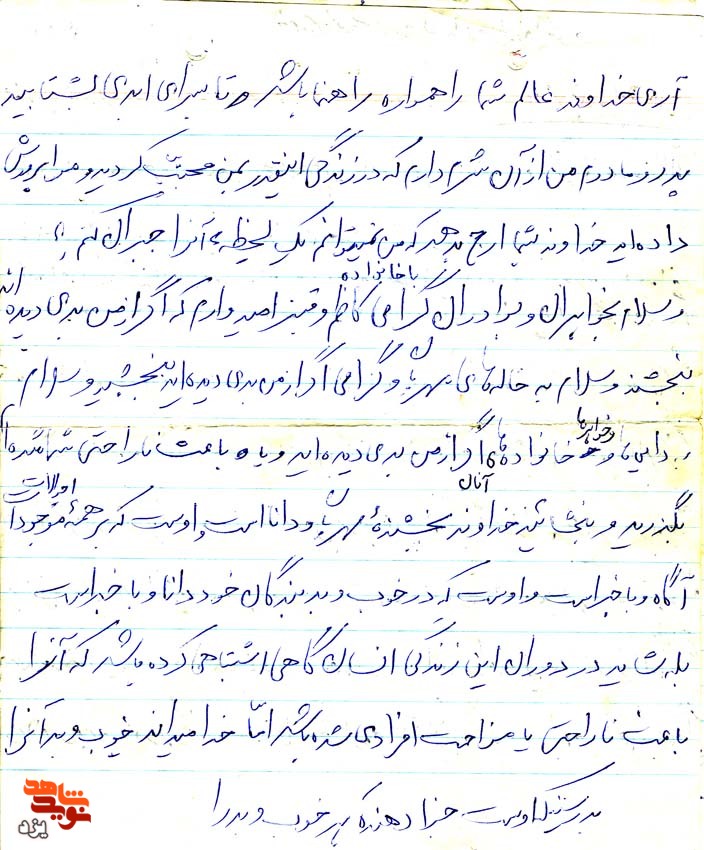 آری خداوند عالم شما را همواره راهنما باشد و تا سرای ابدی بشتابید
پدر و مادرم من از آن شرم دارم که در زندگی اینقدر بمن محبت کردید و مرا پرورش
داده اید خداوند شما ارج بدهد که من نمیتوانم یک لحظهٔ آنرا جبران کنم
با خانواده
و سلام بخواهران و برادران گرامی کاظم و قنبر امیدوارم که اگر از من بدی دیده اند
ببخشند و سلام به خاله های مهربان و گرامی اگر از من بدی دیده اید ببخشید و سلام
به دایی ها و دخترها خانواده های آنان اگر از من بدی دیده اید و یا باعث ناراحتی شما شده ام
بگذرید و ببخشائید خداوند بخشندهٔ مهربان و دانا است و اوست که بر همهٔ موجودات
آگاه و با خبر است و اوست که در خوب و بد بندگان خود دانا و با خبر است
بله شاید در دوران این زندگی انسان گاهی اشتباهی کرده باشد که آنرا
باعث ناراحتی یا مزاحمت افرادی شده باشد امّا خدا میداند خوب و بد آنرا
بدرستیکه اوست جزا دهنده هر خوب و بد را
نوید شاهد
یزد